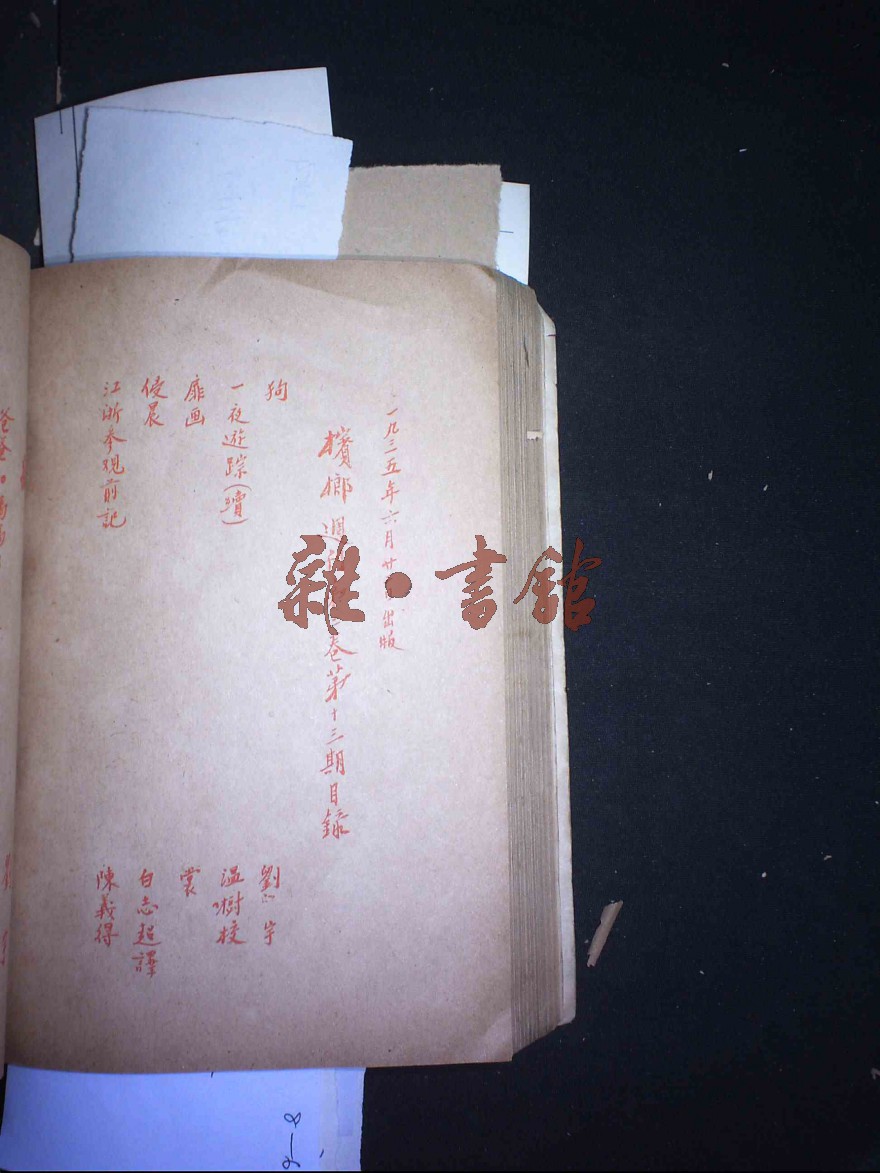 一九三五年六月廿 出版
檳榔週 卷第十三期目錄
狗 劉 宇
一夜遊踪(續) 温樹校
扉画 裳
侵晨 白志超譯
江浙参观前記 陳義得
雜·書館